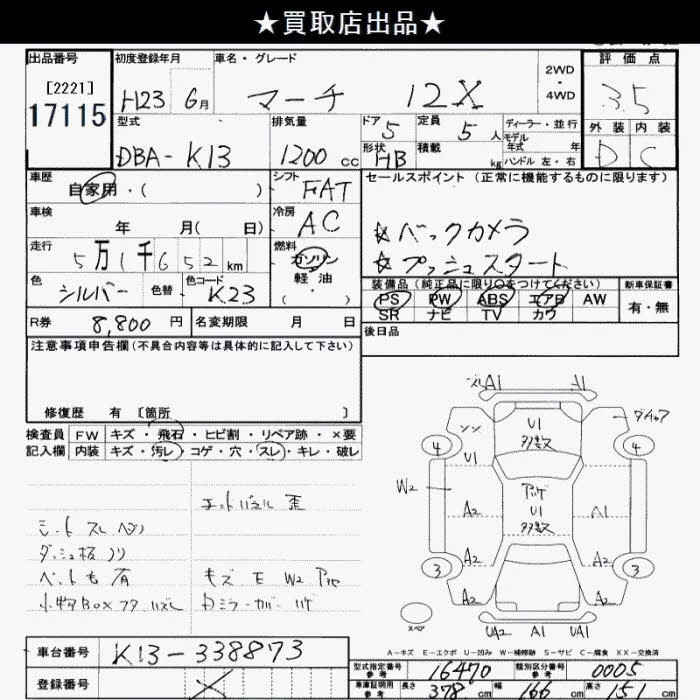 ★買取店出品★
出品番号 初度登録年月 車名・グレード 2WD・4WD 評価点
[2221]
17115 H23 6月 マーチ 12X 3.5
型式 排気量 ドア 5 定員 5人 ディーラー・並行 外装 内装
DBA-K13 1200cc 形状 HB 積載 kg モデル年式 年 ハンドル 左・右 D C
車歴 自家用・( ) シフト FAT セールスポイント (正常に機能するものに限ります)
車検 年 月( 日) 冷房 AC ☆バックカメラ
走行 5万1千652km 燃料 ガソリン・軽油・( ) ☆プッシュスタート
色 シルバー 色替 色コード K23 装備品(純正品に限り○をつけてください) 新車保証書
PS PW ABS エアB AW 有・無
SR ナビ TV カワ
R券 8,800円 名変期限 月 日 後日品
注意事項申告欄(不具合内容等は具体的に記入して下さい)
修復歴 有 [箇所 ]
検査員 FW キズ・飛石・ヒビ割・リペア跡・×要
記入欄 内装 キズ・汚レ・コゲ・穴・スレ・キレ・破レ
シート スレ
ペット毛 有
小物BOXフタ
キズ E W2
A1 A1
U1 多数
U1
W2 A2 U1 多数 A1
A2 A2
A2 A2
4 4
3 3
スペア UA2 A1 UA1
A-キズ E-エクボ U-凹み W-補修跡 S-サビ C-腐食 XX-交換済
車台番号 K13-338873
型式指定番号 参考 16470 類別区分番号 参考 0005
登録番号
車庫証明用 参考 長さ 378cm 幅 166cm 高さ 151cm